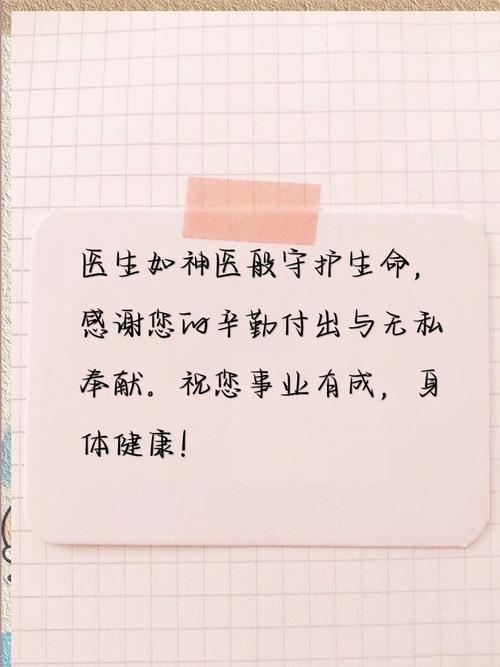 医生如神医般守护生命，
感谢您的辛勤付出与无私
奉献。祝您事业有成，身
体健康！